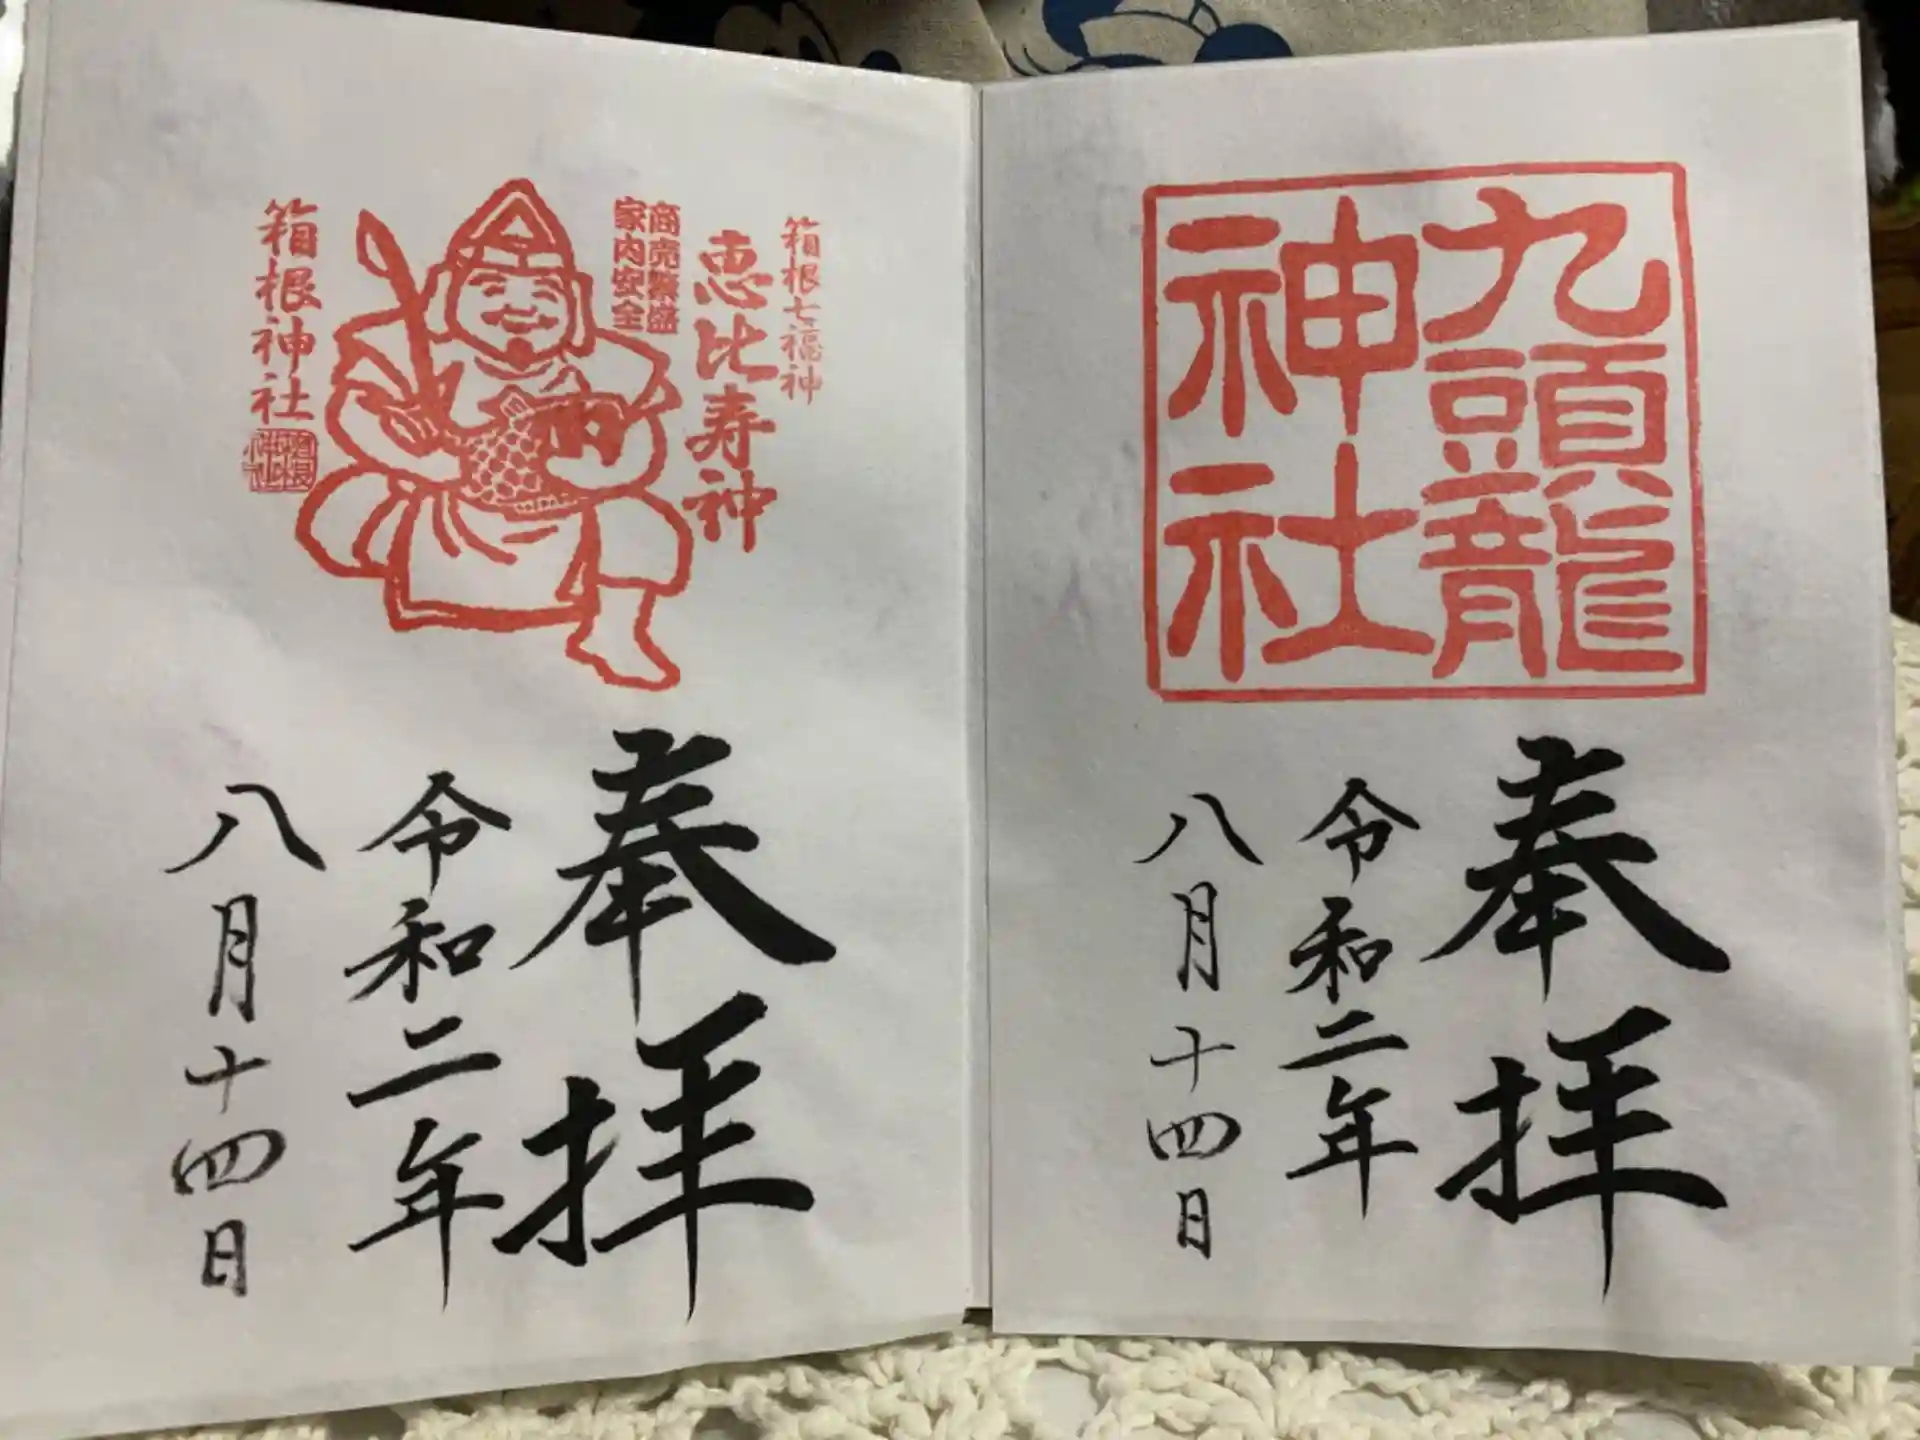 九頭龍
神社
奉拝
令和二年
八月十四日
箱根七福神
恵比寿神
商売繁盛
家内安全
箱根神社
奉拝
令和二年
八月十四日